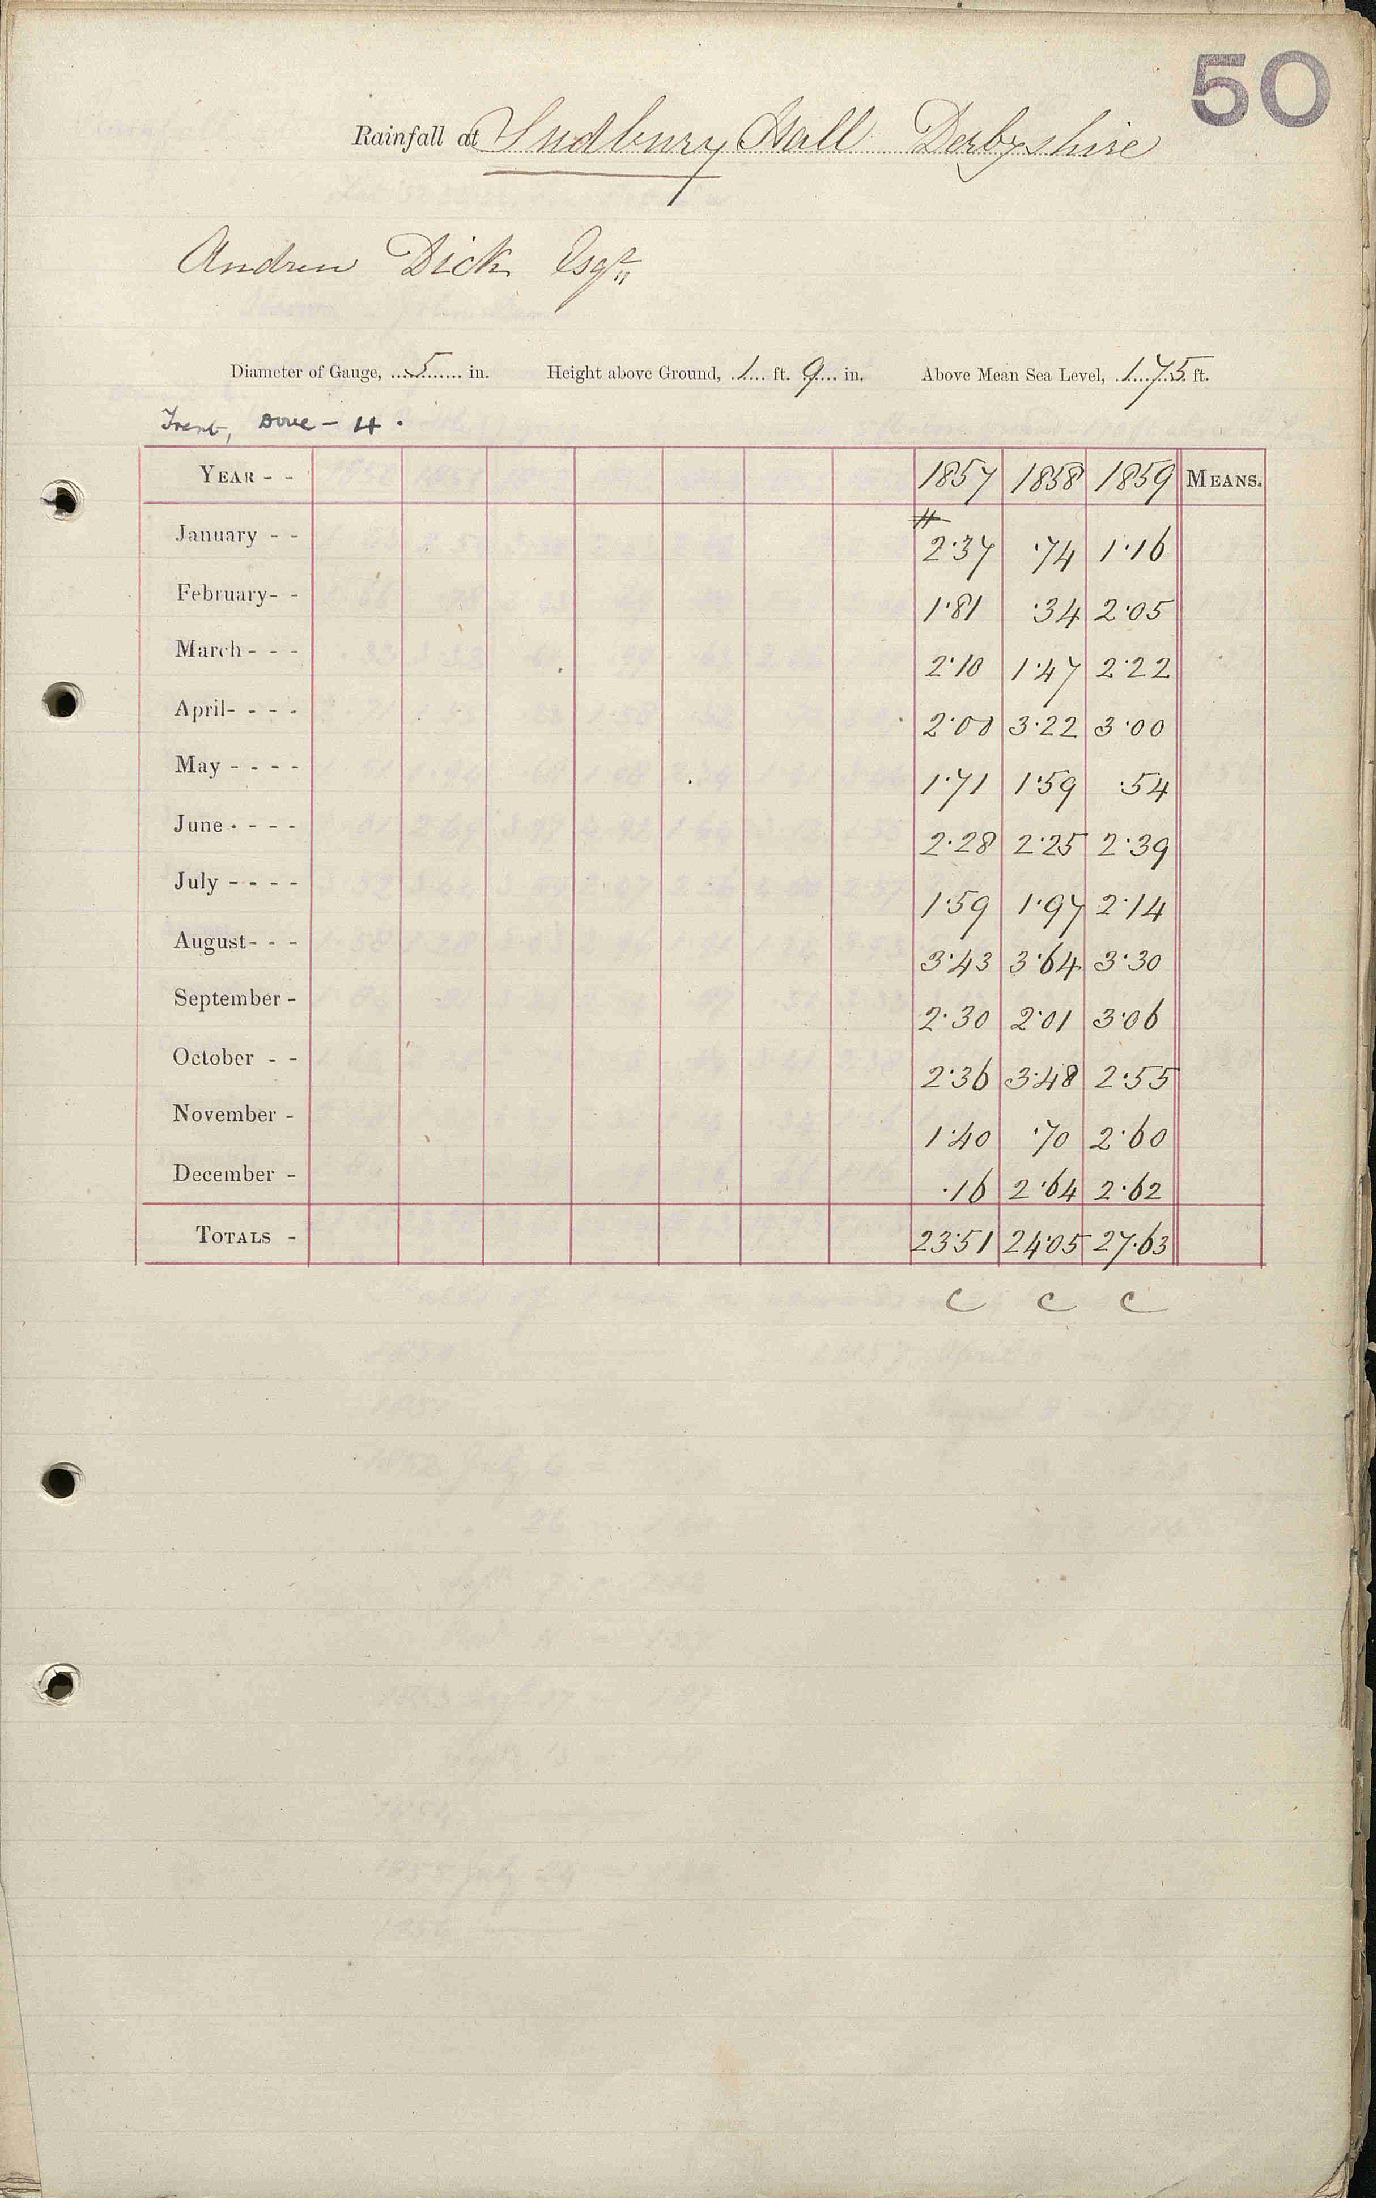 50
Rainfall at Sudbury Hall Derbyshire
Andrew Dick Esqr
Diameter of Gauge, 5 in. Height above Ground, 1 ft. 9 in. Above Mean Sea Level, 175 ft.
Trent, Dove - 4.
YEAR - - 1857 1858 1859 MEANS.
January - - 2.37 .74 1.16
February - - 1.81 .34 2.05
March - - - 2.10 1.47 2.22
April - - - - 2.00 3.22 3.00
May - - - - 1.71 1.59 .54
June - - - - 2.28 2.25 2.39
July - - - - 1.59 1.97 2.14
August - - - 3.43 3.64 3.30
September - 2.30 2.01 3.06
October - - 2.36 3.48 2.55
November - 1.40 .70 2.60
December - .16 2.64 2.62
TOTALS - 23.51 24.05 27.63
C C C